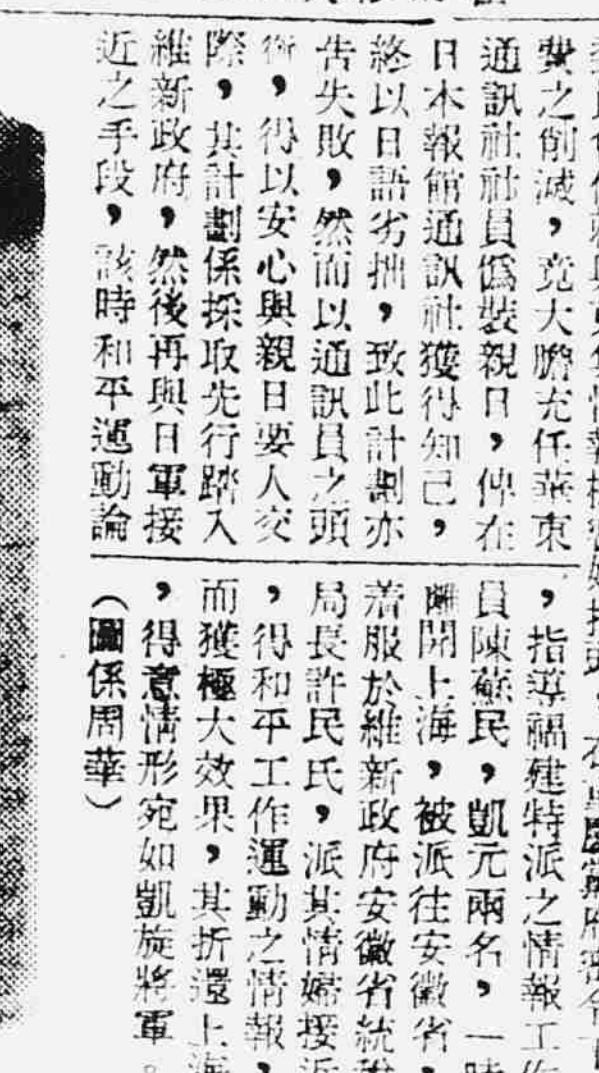 費之削減，竟大膽充任華東
通訊社社員僞裝親日，俾在
日本報館通訊社獲得知己，
終以日語劣拙，致此計劃亦
告失敗，然而以通訊員之頭
銜，得以安心與親日要人交
際，其計劃係採取先行踏入
維新政府，然後再與日軍接
近之手段，該時和平運動論
，指導福建特派之情報工作
員陳蘇民，凱元兩名，一時
離開上海，被派往安徽省，
着服於維新政府安徽省統稅
局長許民氏，派其情婦接近
，得和平工作運動之情報，
而獲極大效果，其折還上海
，得意情形宛如凱旋將軍。
（圖係周華）